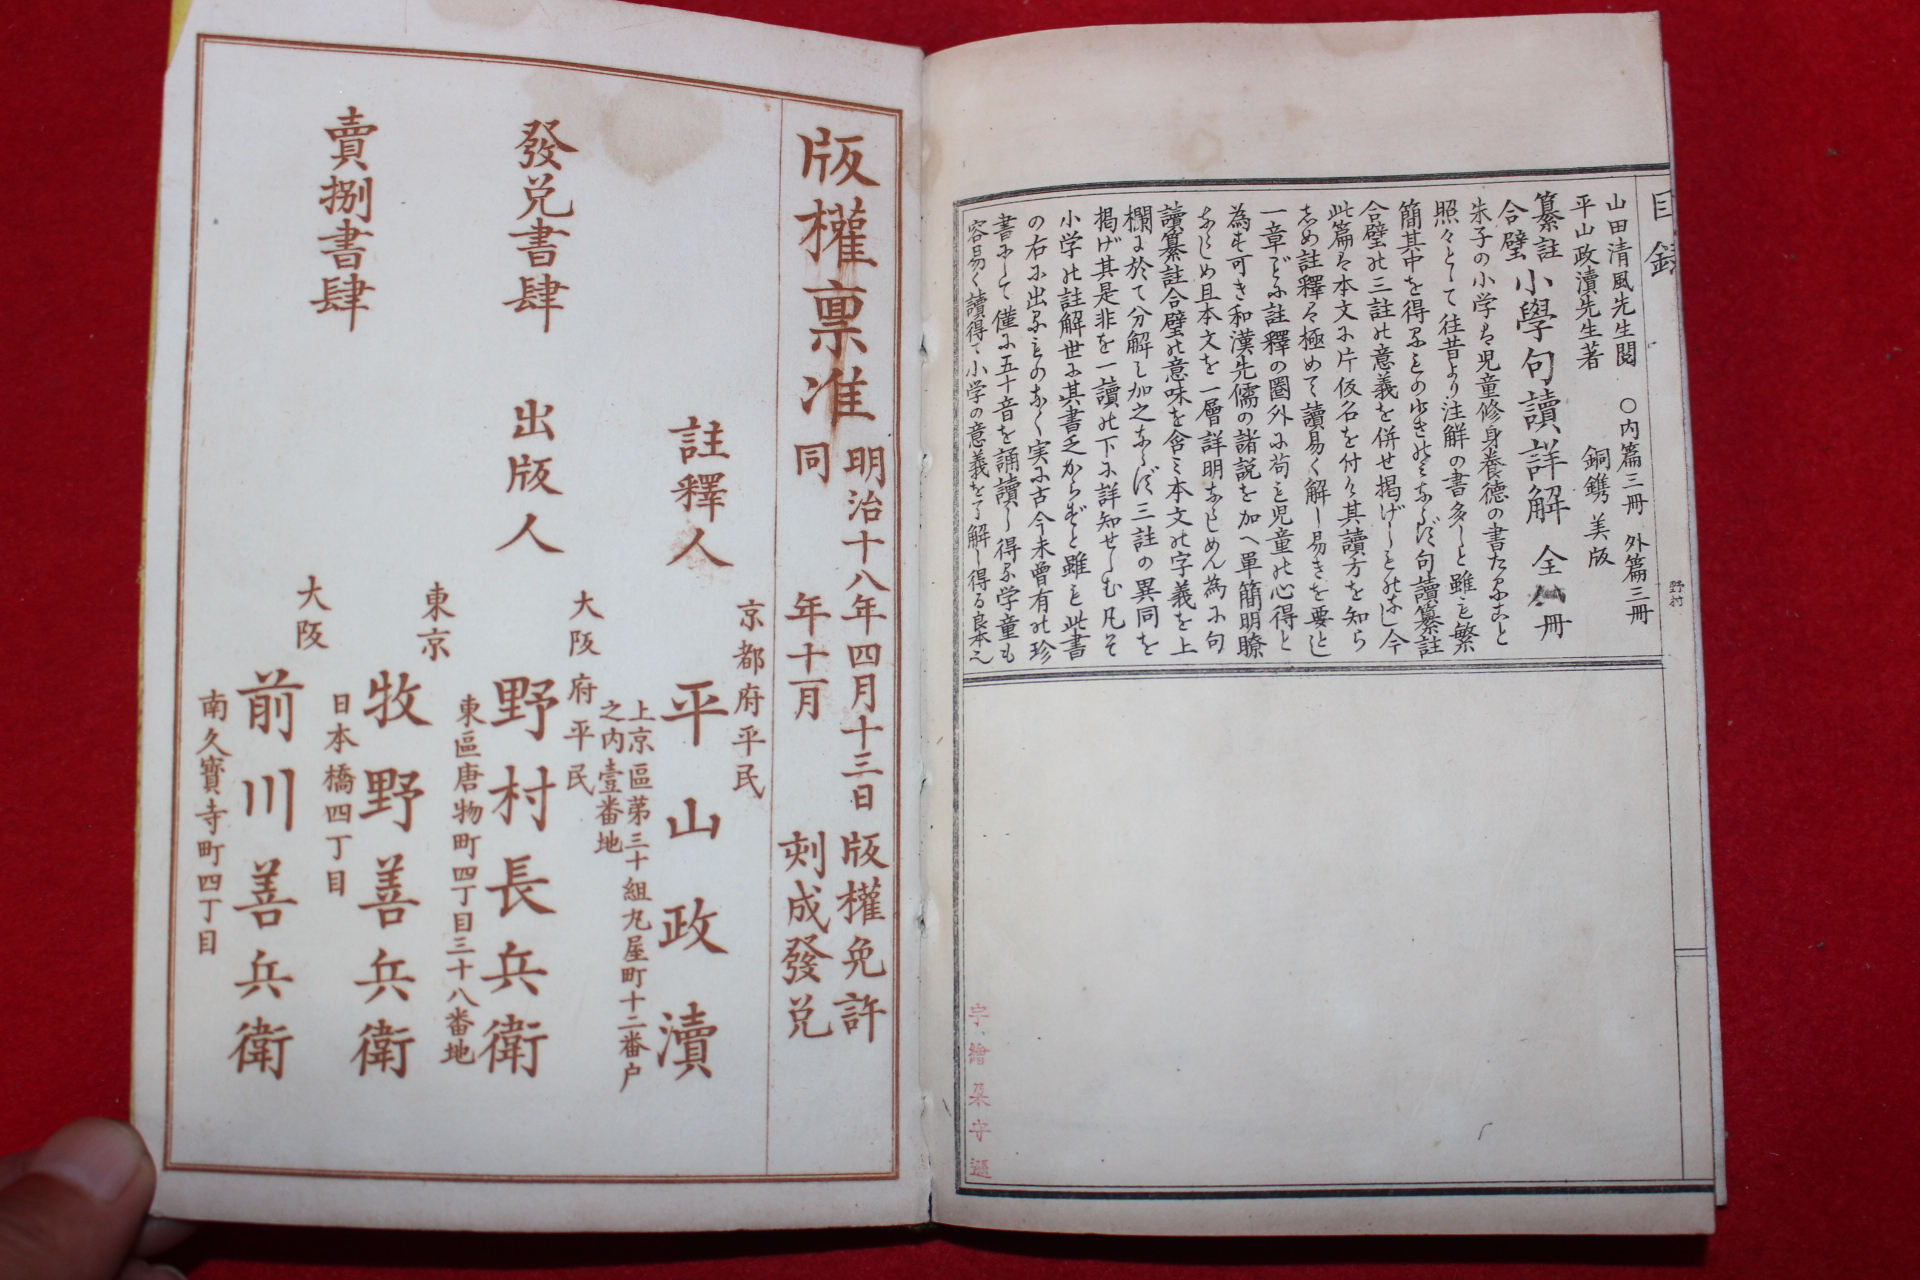 目録
山田清風先生閲　○内篇三冊　外篇三冊
平山政瀆先生著　銅鐫美版
纂註
合璧
小學句讀詳解　全　冊
朱子の小学ハ児童修身養德の書たることと
照々として往昔より注解の書多しと雖も繁
簡其中を得るもの少きのミならず句讀纂註
合璧の三註の意義を併せ揭げしものなし今
此篇ハ本文に片仮名を付け其讀方を知ら
しめ註釋ハ極めて讀易く解し易きを要とし
一章ごとに註釋の圏外に苟も児童の心得と
為す可き和漢先儒の諸説を加へ單簡明瞭
ならしめ且本文を一層詳明ならしめん為に句
讀纂註合璧の意味を含ミ本文の字義を上
欄に於て分解し加之ならず三註の異同を
揭げ其是非を一讀の下に詳知せしむ凡そ
小学の註解世に其書乏からずと雖も此書
の右に出るものなく実に古今未曾有の珍
書にして僅に五十音を誦讀し得る学童も
容易く讀得て小学の意義を了解し得る良本也
野村
版權稟准
明治十八年四月十三日　版權免許
同　年十一月　刻成發兌
註釋人
京都府平民
平山政瀆
上京區第三十組丸屋町十二番戸
之内壹番地
發兌書肆　出版人
大阪府平民
野村長兵衛
東區唐物町四丁目三十八番地
賣捌書肆
東京
牧野善兵衛
日本橋四丁目
大阪
前川善兵衛
南久寶寺町四丁目